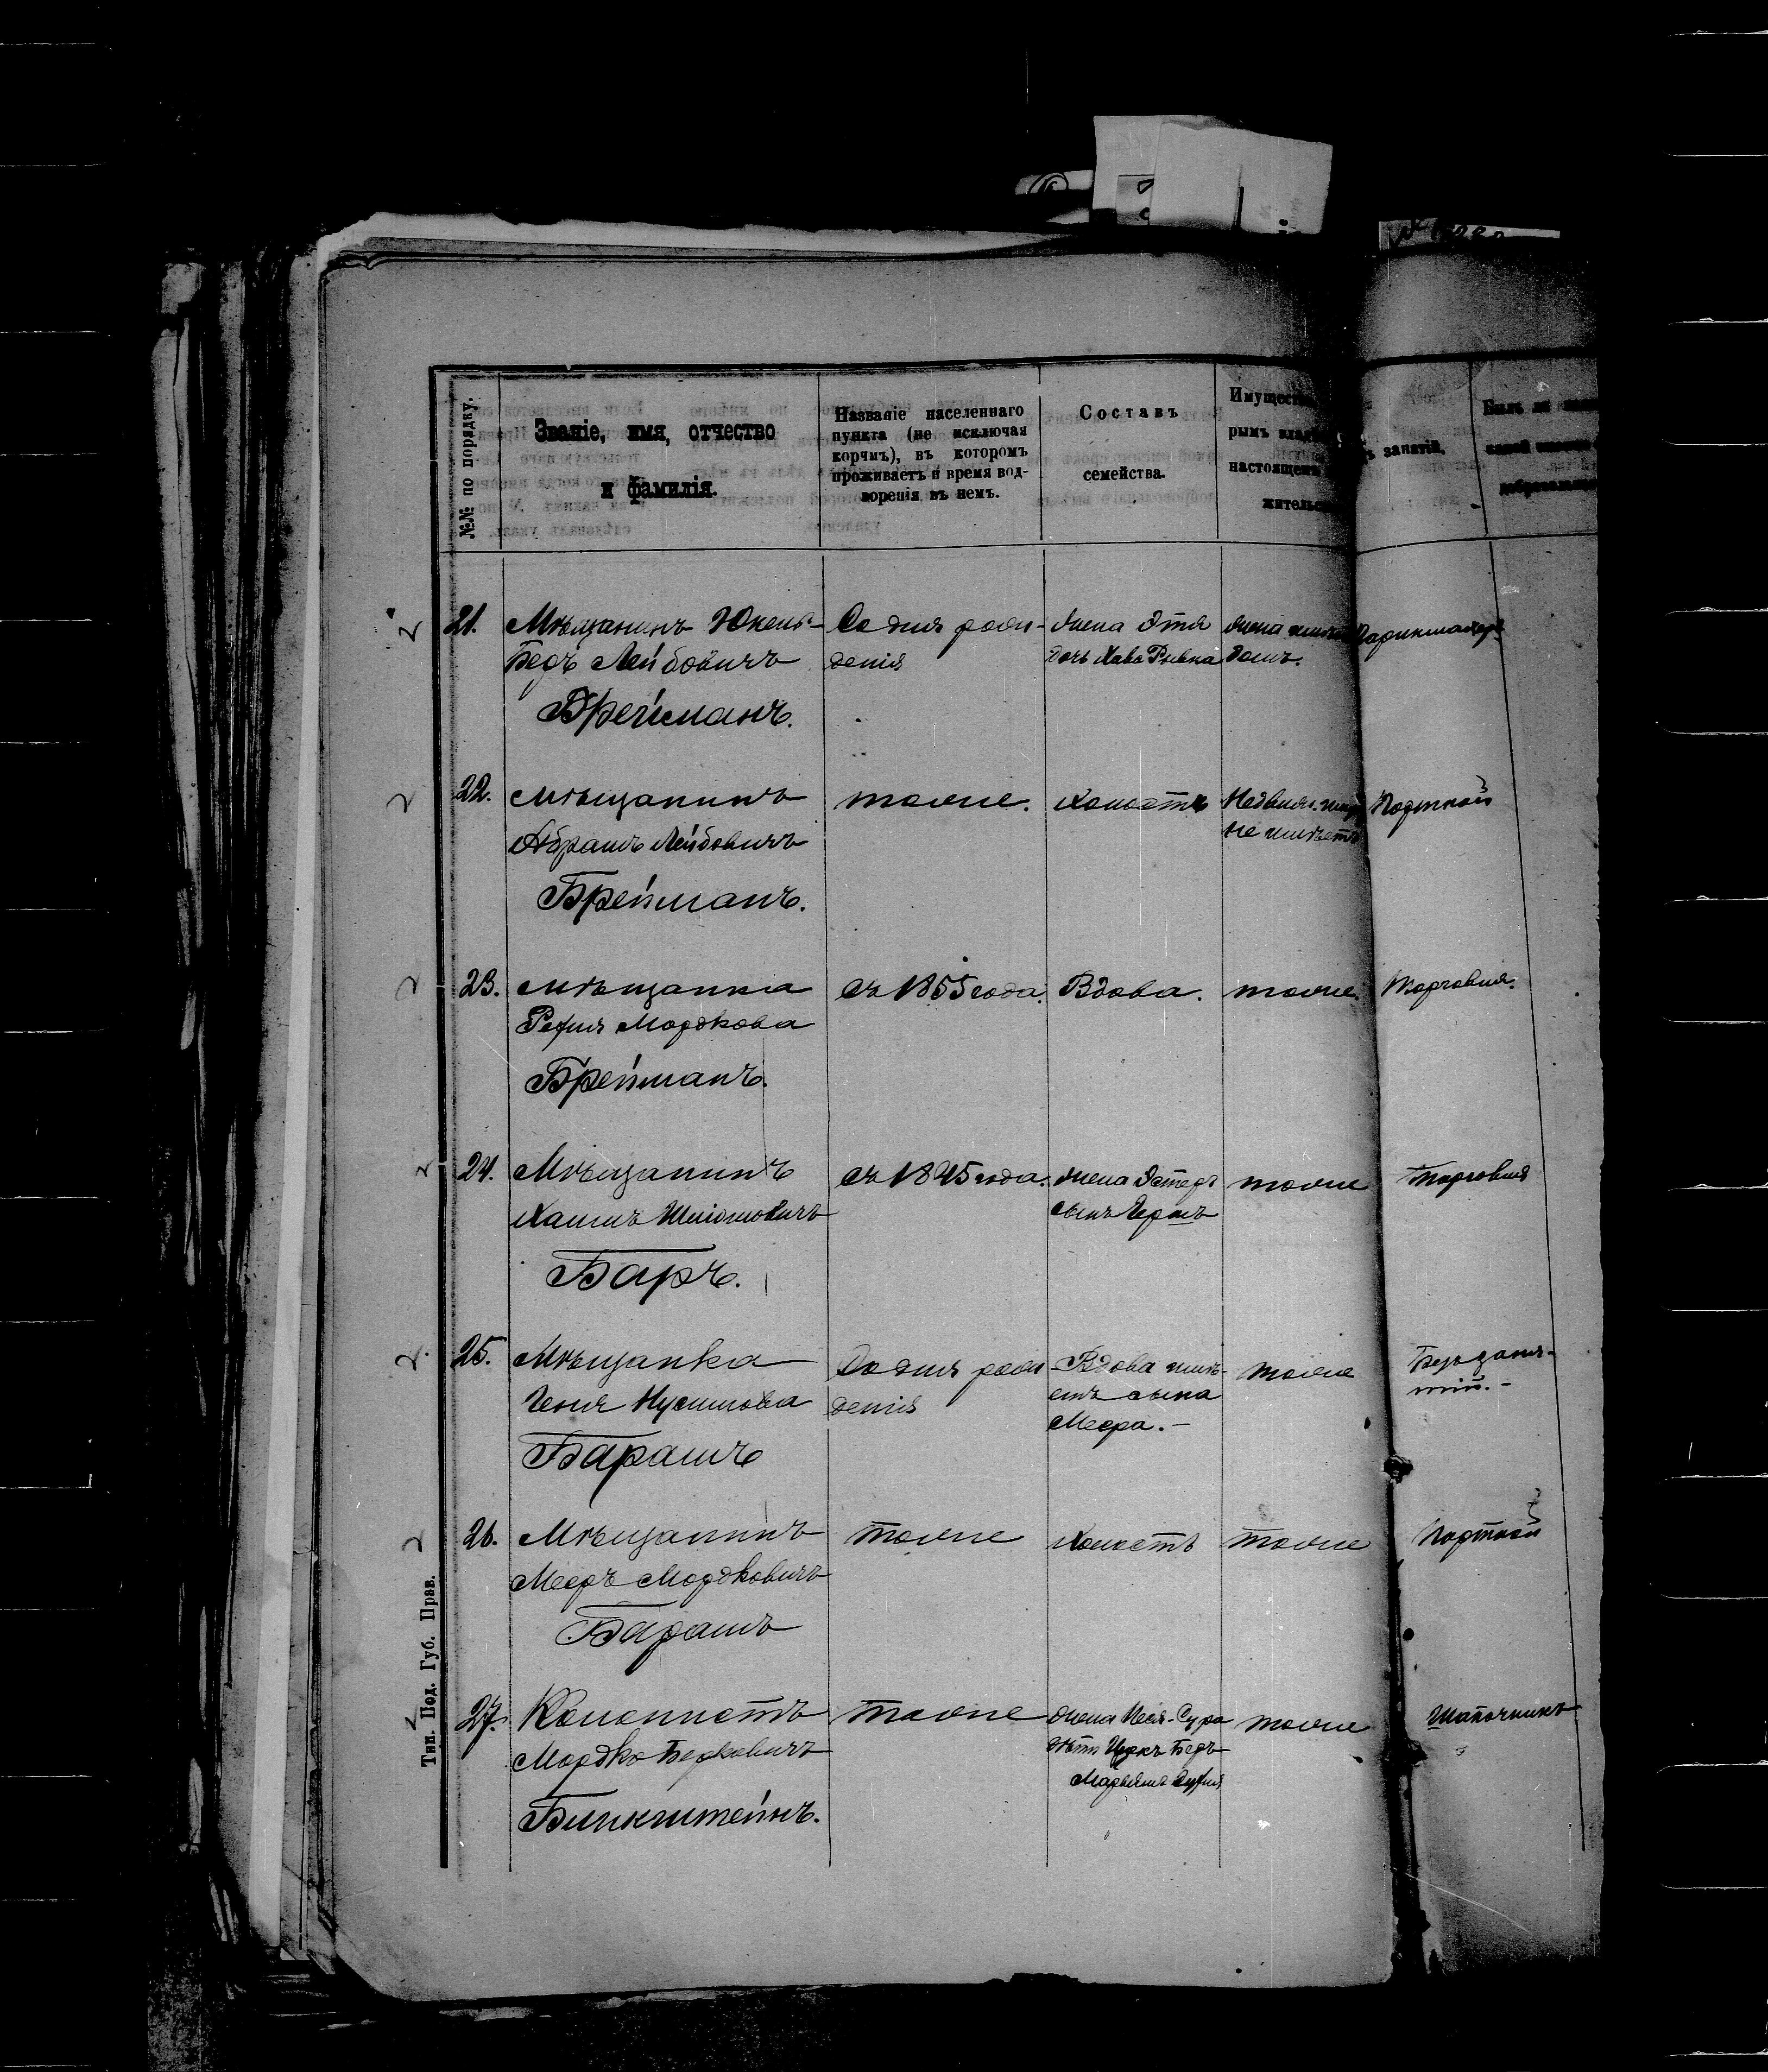 №№ по порядку.
Званіе, имя, отчество
и фамилія.
Названіе населеннаго
пункта (не исключая
корчмъ), въ которомъ
проживаетъ и время вод-
воренія въ немъ.
Составъ
семейства.
рымъ
настоящемъ
занятій.
21. Мѣщанинъ
Беръ Лейбовичъ
Брейманъ.
Со дня рож-
денія
жена Этя
дочь Хава Ривка
жена
домъ.
Парикмахеръ
22. мѣщанинъ
Абрамъ Лейбовичъ
Брейманъ.
тоже.
холостъ
Недвиж.
не имѣетъ
Портной
23. мѣщанка
Мордкова
Брейманъ.
съ 1855 года.
Вдова.
тоже.
Торговля.
24. Мѣщанинъ
Хаимъ Шліомовичъ
Баръ.
съ 1845 года.
жена Эстеръ
сынъ
тоже
Торговля
25. Мѣщанка
Геня Нусимова
Барашъ
Со дня рож
денія
Вдова имѣ-
етъ сына
Меера.-
тоже
Безъ заня-
тій.-
26. Мѣщанинъ
Мееръ Мордковичъ
Барашъ
тоже
холостъ
тоже
Портной
27. Колонистъ
Мордко Берковичъ
Бинкштейнъ.
тоже
жена Песя-Сура
дѣти Беръ
тоже
Шапочникъ
2
2
2
2
2.
2
2
Тип. Под. Губ. Прав.